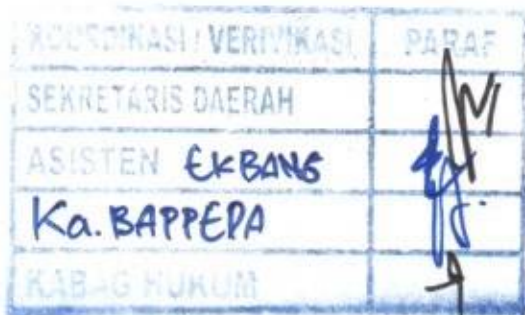 KOORDINASI / VERIVIKASI PARAF
SEKRETARIS DAERAH
ASISTEN EKBANG
Ka. BAPPEDA
KABAG HUKUM